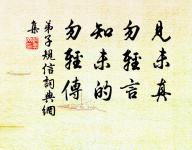 見未真
勿輕言
知未的
勿輕傳
弟子規信詞典網
集